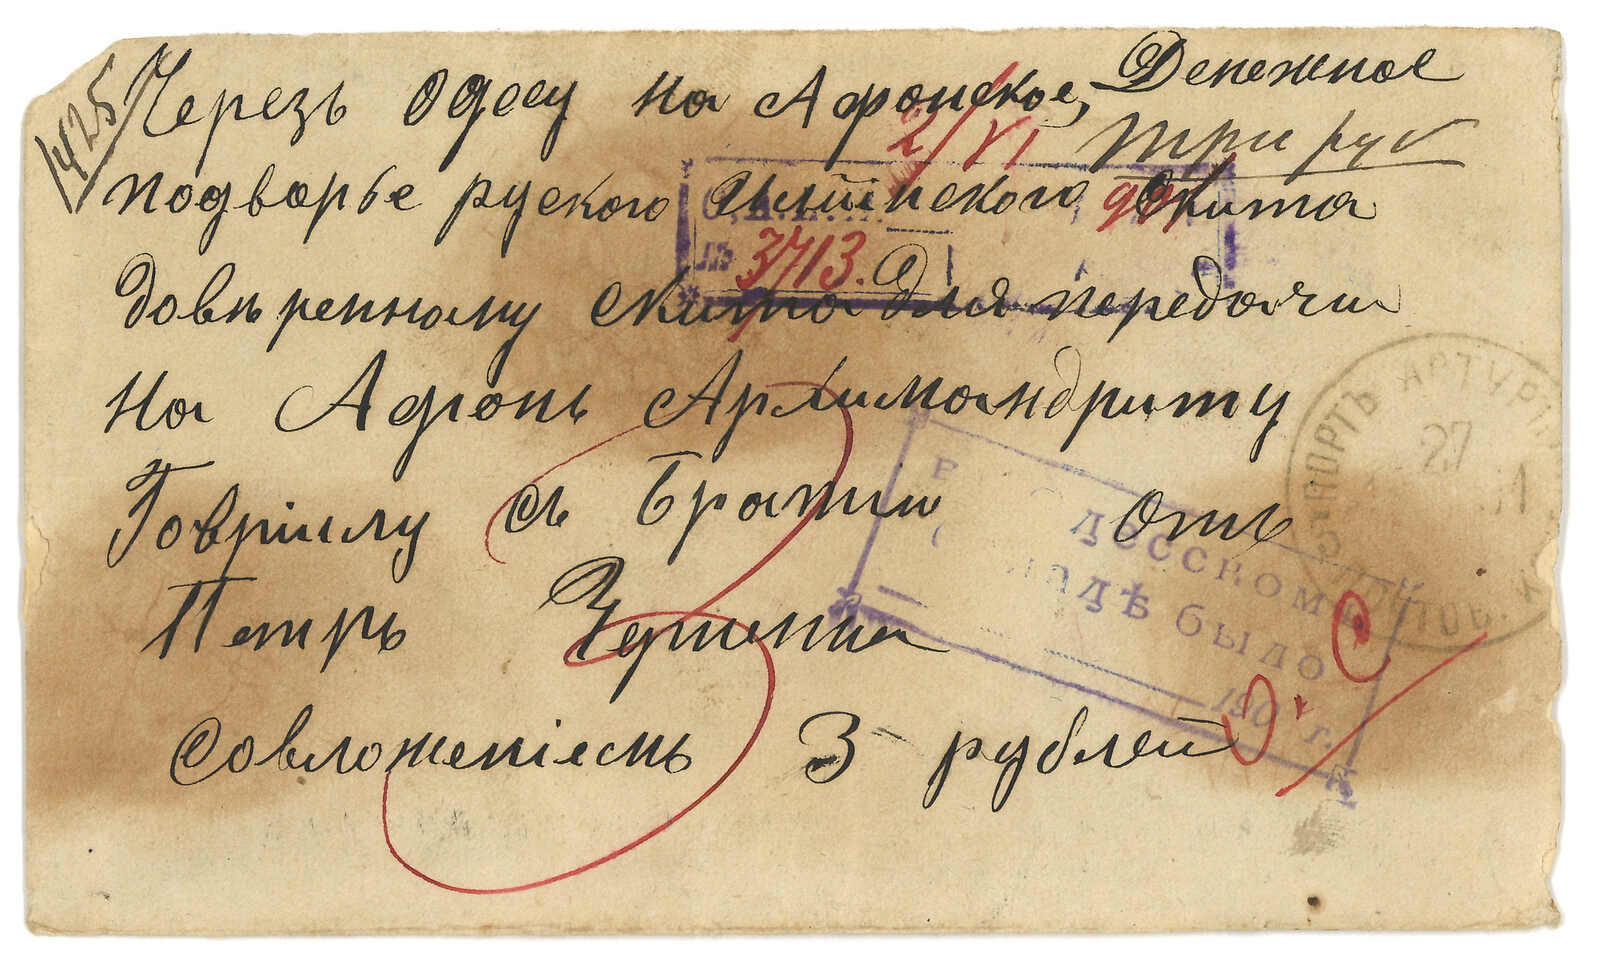 1425
Черезъ Одесу на Афонское, Денежное
три руб
2/VI
подворье руского Ильинского Скита
3713.
довѣренному скита для передачи
на Афонъ Архимандриту
Говріилу съ Братіи отъ
Петръ
совложеніемъ 3 рублей
ПОРТЪ АРТУРЪ
27
ДЕССКОМЪ
ОДѢ БЫЛО
190 г.